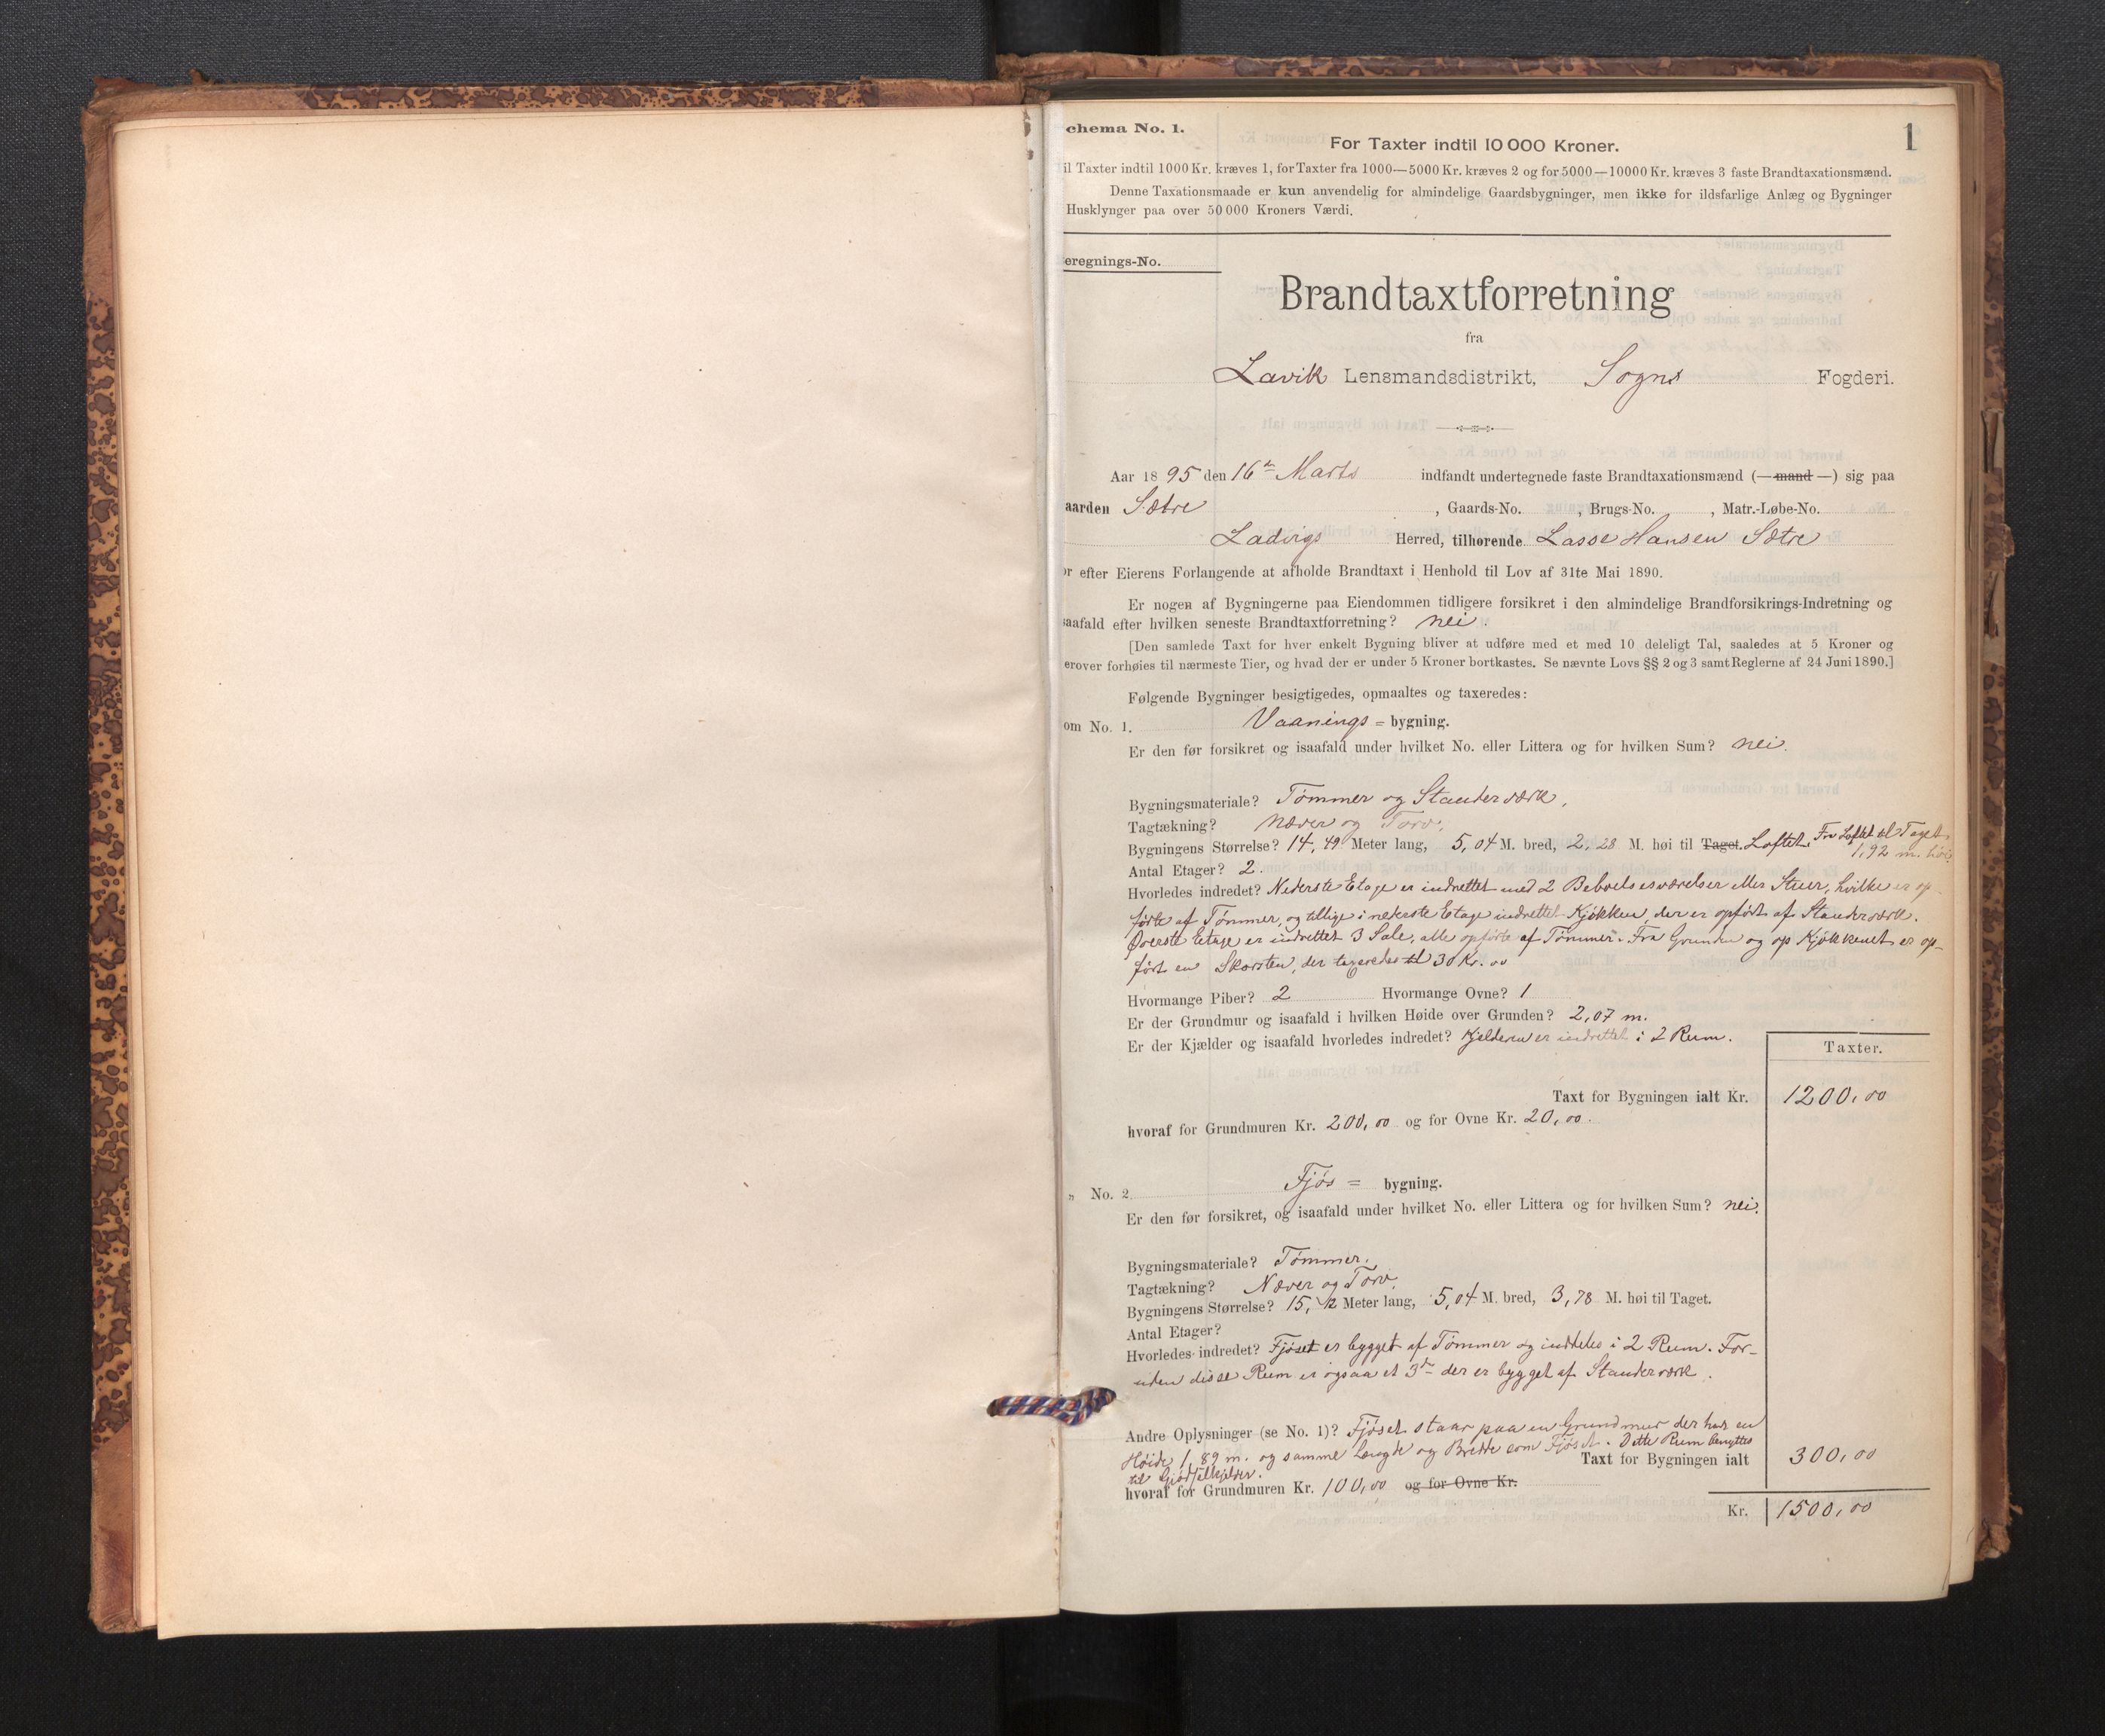 chema No. 1.
1
For Taxter indtil 10 000 Kroner.
il Taxter indtil 1000 Kr. kræves 1, for Taxter fra 1000—5000 Kr. kræves 2 og for 5000—10000 Kr. kræves 3 faste Brandtaxationsmænd.
Denne Taxationsmaade er kun anvendelig for almindelige Gaardsbygninger, men ikke for ildsfarlige Anlæg og Bygninger
Husklynger paa over 50 000 Kroners Værdi.
eregnings-No.
Brandtaxtforretning
fra
Lavik Lensmandsdistrikt, Sogns Fogderi.
Aar 1895 den 16de Marts indfandt undertegnede faste Brandtaxationsmænd (— mand —) sig paa
aarden Sætre , Gaards-No. , Brugs-No. , Matr.-Løbe-No.
Ladvigs Herred, tilhørende Lasse Hansen Sætre
or efter Eierens Forlangende at afholde Brandtaxt i Henhold til Lov af 31te Mai 1890.
Er nogen af Bygningerne paa Eiendommen tidligere forsikret i den almindelige Brandforsikrings-Indretning og
saafald efter hvilken seneste Brandtaxtforretning? nei.
[Den samlede Taxt for hver enkelt Bygning bliver at udføre med et med 10 deleligt Tal, saaledes at 5 Kroner og
erover forhøies til nærmeste Tier, og hvad der er under 5 Kroner bortkastes. Se nævnte Lovs §§ 2 og 3 samt Reglerne af 24 Juni 1890.]
Følgende Bygninger besigtigedes, opmaaltes og taxeredes:
om No. 1. Vaanings = bygning.
Er den før forsikret og isaafald under hvilket No. eller Littera og for hvilken Sum? nei.
Bygningsmateriale? Tømmer og Standerværk.
Tagtækning? Næver og Torv.
Bygningens Størrelse? 14,49 Meter lang, 5,04 M. bred, 2,28 M. høi til Taget. Loftet. Fra Loftet til Taget
1,92 m. høi.
Antal Etager? 2.
Hvorledes indredet? Nederste Etage er indrettet med 2 Beboelsesværelser eller Stuer, hvilke er op-
førte af Tømmer, og tillige i nederste Etage indrettet Kjøkken, der er opført af Standerværk.
Øverste Etage er indrettet 3 Sale, alle opførte af Tømmer. Fra Grunden og op Kjøkkenet er op-
ført en Skorsten, der taxeredes til 30 Kr. 00
Hvormange Piber? 2 Hvormange Ovne? 1
Er der Grundmur og isaafald i hvilken Høide over Grunden? 2,07 m.
Er der Kjælder og isaafald hvorledes indredet? Kjelderen er indrettet i 2 Rum.
Taxter.
Taxt for Bygningen ialt Kr. 1200,00
hvoraf for Grundmuren Kr. 200,00 og for Ovne Kr. 20,00.
„ No. 2 Fjøs = bygning.
Er den før forsikret, og isaafald under hvilket No. eller Littera og for hvilken Sum? nei.
Bygningsmateriale? Tømmer.
Tagtækning? Næver og Torv.
Bygningens Størrelse? 15,12 Meter lang, 5,04 M. bred, 3,78 M. høi til Taget.
Antal Etager?
Hvorledes indredet? Fjøset er bygget af Tømmer og inddeles i 2 Rum. For-
uden disse Rum er ogsaa et 3de der er bygget af Standerværk.
Andre Oplysninger (se No. 1)? Fjøset staar paa en Grundmur der har en
Høide 1,89 m. og samme Længde og Bredde som Fjøset. Dette Rum benyttes
til Gjødselkjelder.
Taxt for Bygningen ialt 300,00
hvoraf for Grundmuren Kr. 100,00 og for Ovne Kr.
Kr. 1500,00